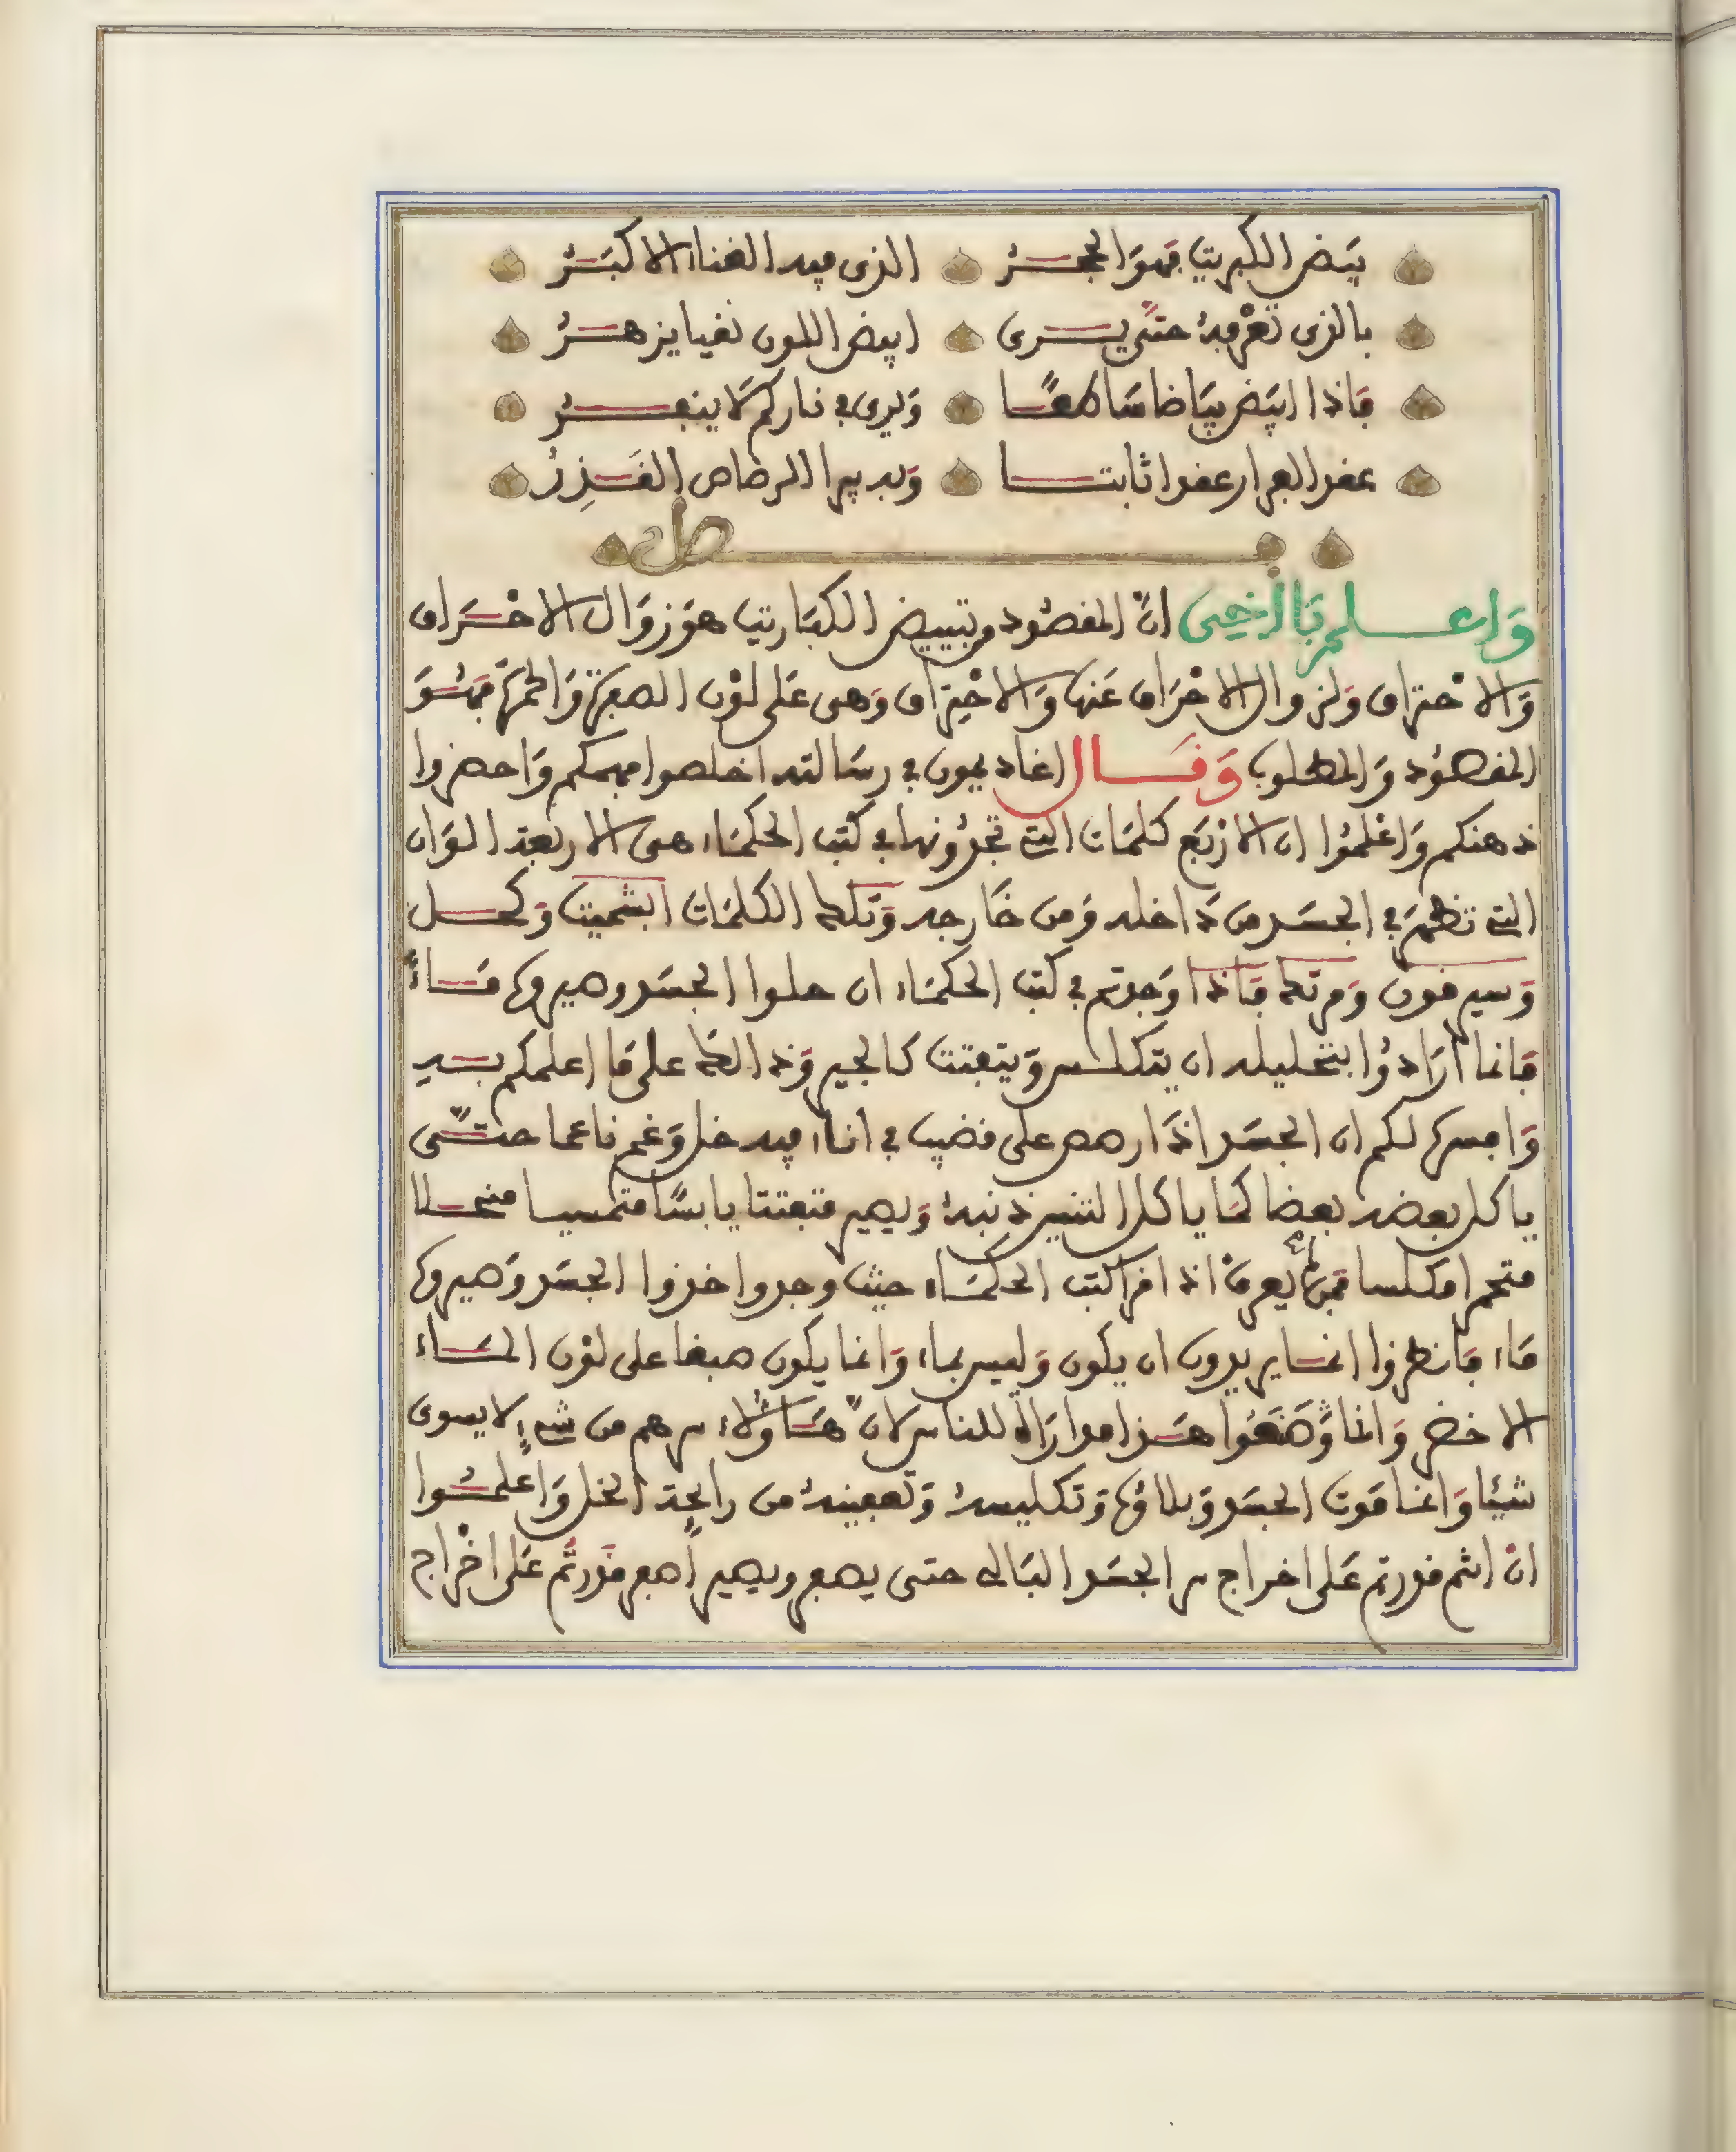 بيض الكبريت فهو الحجر الذي فيه الغناء الاكبر
بالذي تعرفه حتى يرى ابيض اللون نقيا يزهر
فاذا ابيض بياضا ساطعا ويرى في ناركم لا ينفر
عقد الفرار عقدا ثابتا وبه يبرا الرصاص القذر
فصل
واعلم يا اخي ان المقصود من تبييض الكباريت هو زوال الاحراق
والاحتراق ولزوال الاحراق عنها والاحتراق وهي على لون الصفرة والحمرة فهو
المقصود والمطلوب وقال اغاديمون في رسالته اخلصوا فهمكم واحضروا
ذهنكم واعلموا ان الاربع كلمات التي تجدونها في كتب الحكماء هي الاربعة الوان
التي تظهر في الجسد من داخله ومن خارجه وتلك الكلمات ابشميت وكحل
وسيرقون ومرتك فاذا وجدتم في كتب الحكماء ان حلوا الجسد وصيروه ماء
فانما ارادوا بتحليله ان يتكلس ويتفتت كالجير وذالك على ما اعلمكم به
وافسره لكم ان الجسد اذا رصص على قضيب في اناء فيه خل وغم ناعما حتى
ياكل بعضه بعضا كما ياكل التنين ذنبه ويصير متفتتا يابسا متمسا منحلا
متحما مكلسا فمن لم يعرف اذا قرا كتب الحكماء حيث وجدوا خذوا الجسد وصيروه
ماء فانظروا انما يريدون ان يكون وليس بماء وانما يكون صبغا على لون الماء
الاخضر وانما وضعوا هذا مداراة للناس لان هاؤلاء سرهم من شيء لا يسوى
شيئا وانما موت الجسد وبلاؤه وتكليسه وتعفينه من رايحة الخل واعلموا
ان انتم قدرتم على اخراج سر الجسد البالي حتى يصفو ويصير اصفر قدرتم على اخراج